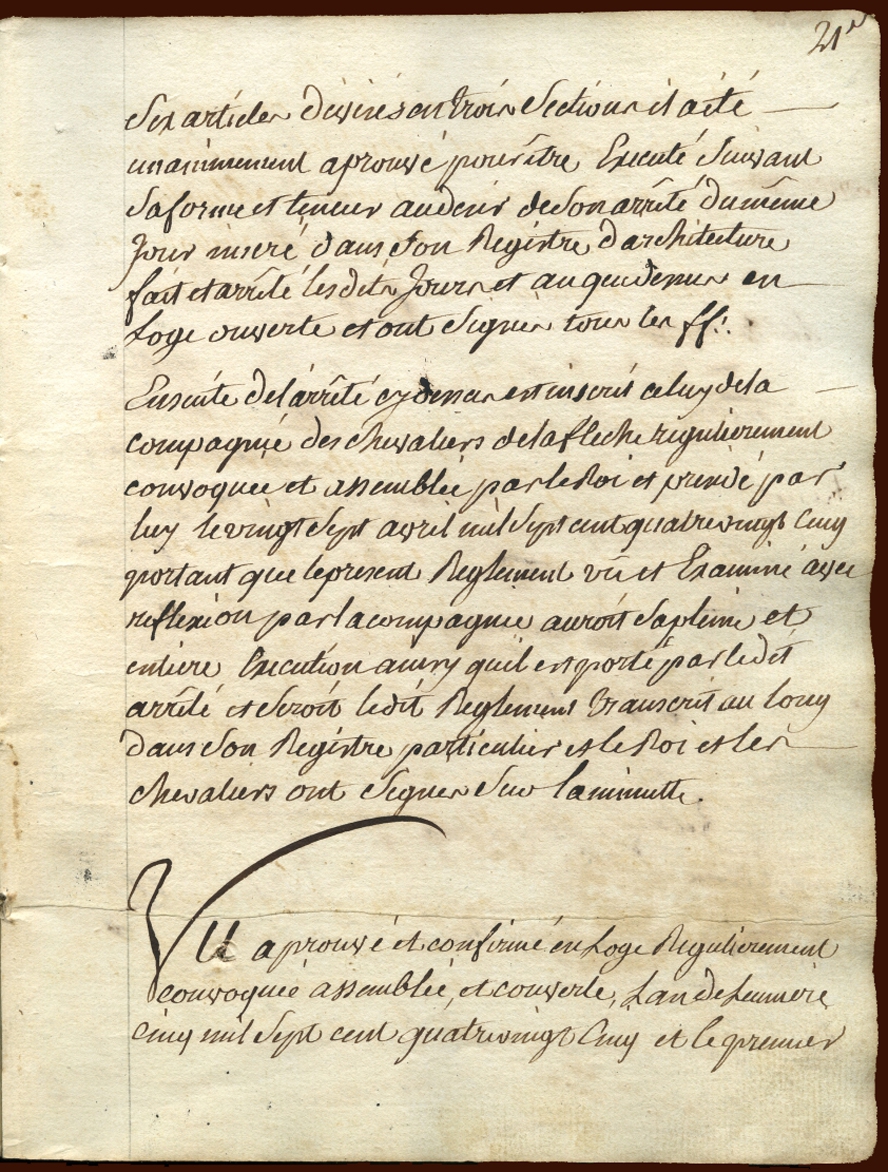 21e
Six articles divisés en trois Sections il a été
unanimement aprouvé pour être Executé Suivant
Sa forme et teneur au desir de Son arrêté du même
Jour inseré dans Son Registre d'architecture
fait et arrêté lesdits Jours et an que dessus en
Loge ouverte et ont Signés tous les ff∴
Ensuite de l'arrêté cy dessus est inscrit celuy de la
compagnie des chevaliers de la fleche regulierement
convoquée et assemblée par le Roi et presidé par
luy le vingt Sept avril mil Sept cent quatre vingt Cinq
portant que le present Reglement vû et Examiné avec
reflexion par la compagnie auroit Sa pleine et
entiere Execution ainsy qu'il est porté par le dit
arrêté et Seroit le dit Reglement transcrit au long
dans Son Registre particulier et le Roi et les
chevaliers ont Signés Sur la minutte.
Vu aprouvé et confirmé en Loge Regulierement
convoquée assemblée, et couverte, L'an de Lumiere
Cinq mil Sept cent quatre vingt Cinq et le premier